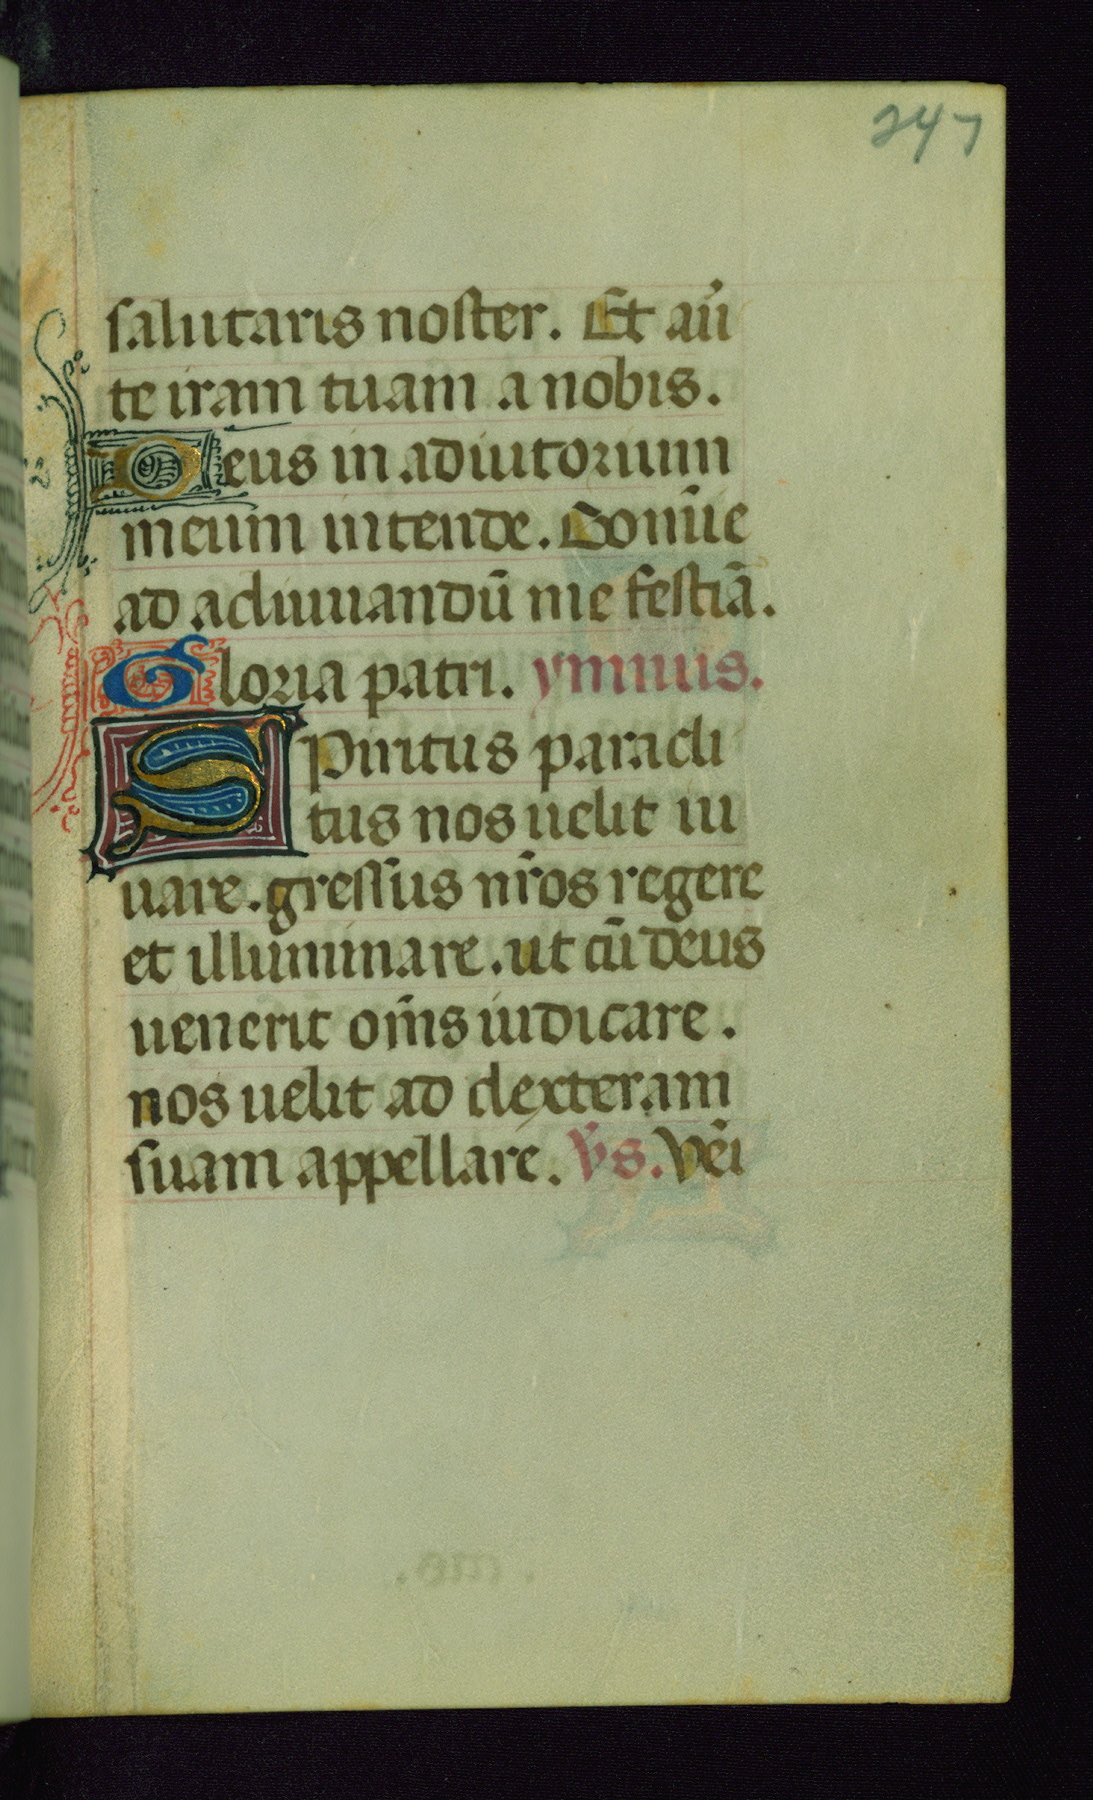 247
salutaris noster. Et au̅
te iram tuam a nobis.
Deus in adiutorium
meum intende. Domi̅e
ad adiuuandu̅ me festi̅a.
Gloria patri. ymnus.
Spiritus paracli
tus nos uelit iu
uare. gressus nr̅os regere
et illuminare. ut cu̅ deus
uenerit om̅s iudicare.
nos uelit ad dexteram
suam appellare. V̅s. Ve̅i